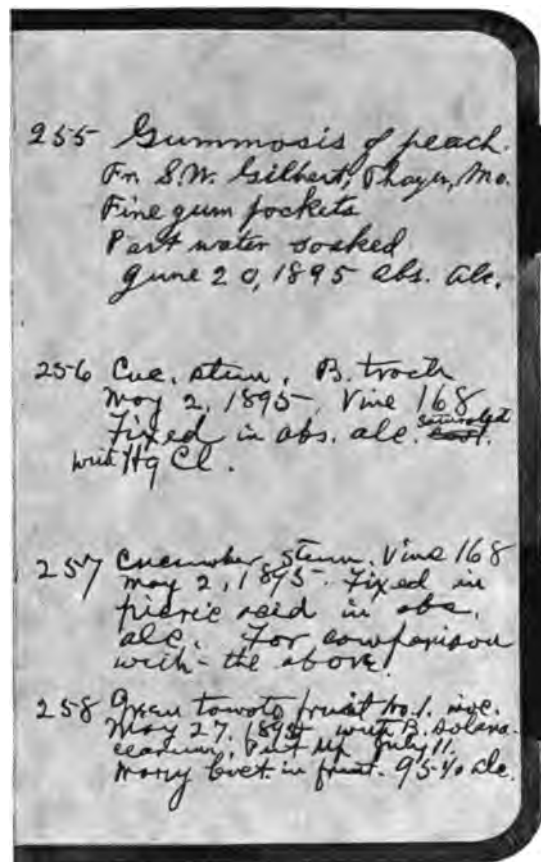 255 Gummosis of peach.
Fm S.W. Gilbert, Thayer, Mo.
Fine gum pockets
Part water soaked
June 20, 1895 abs. alc.
256 Cuc. stem. B. trach
May 2, 1895. Vine 168
Fixed in abs. alc. saturated
with Hg Cl.
257 Cucumber stem. Vine 168
May 2, 1895. Fixed in
picric acid in abs.
alc. For comparison
with the above.
258 Green tomato fruit No. 1. inoc.
May 27, 1895, with B. solana-
cearum, Put up July 11.
Many bact. in fruit. 95% alc.